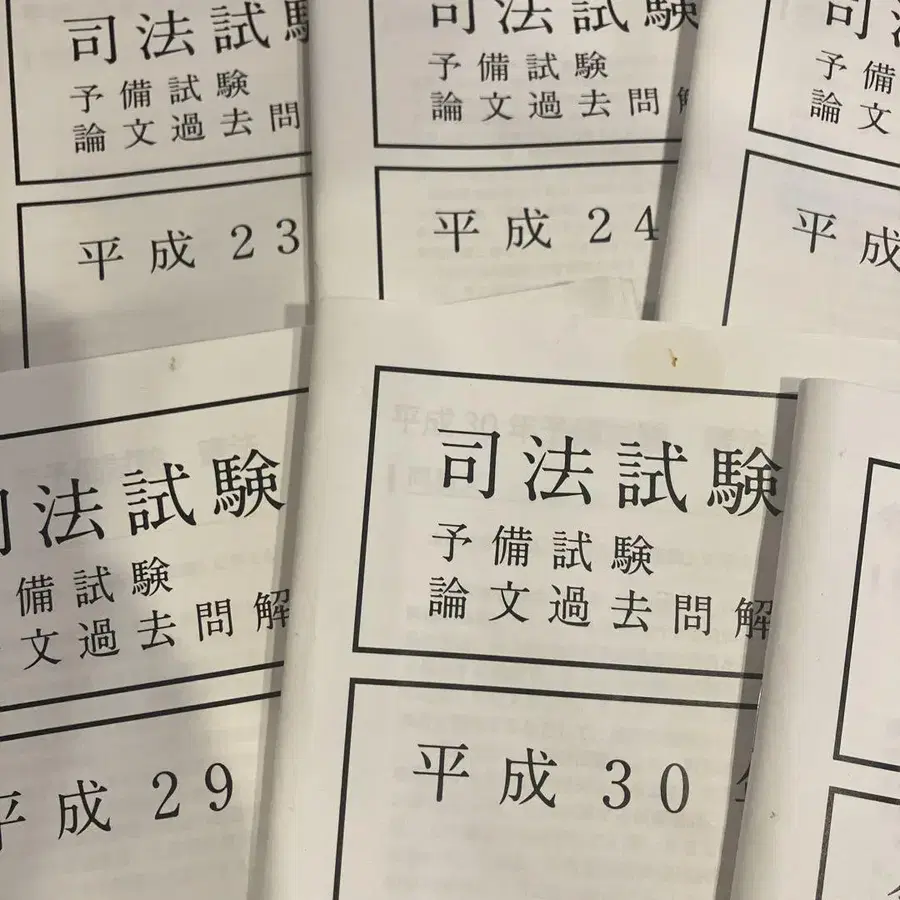 司法試験
予備試験
論文過去問
平成23
司法試験
予備試験
論文過去問解
平成24
司
予備
論文
平成
司法試験
備試験
文過去問解
平成29
司法試験
予備試験
論文過去問解
平成30